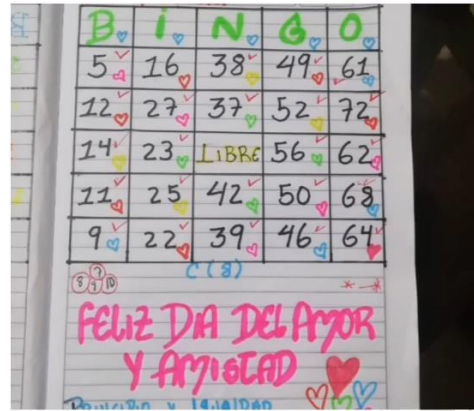 B I N G O
5 16 38 49 61
12 27 37 52 72
14 23 LIBRE 56 62
11 25 42 50 68
9 22 39 46 64
C(8)
FELIZ DIA DEL AMOR
Y AMISTAD